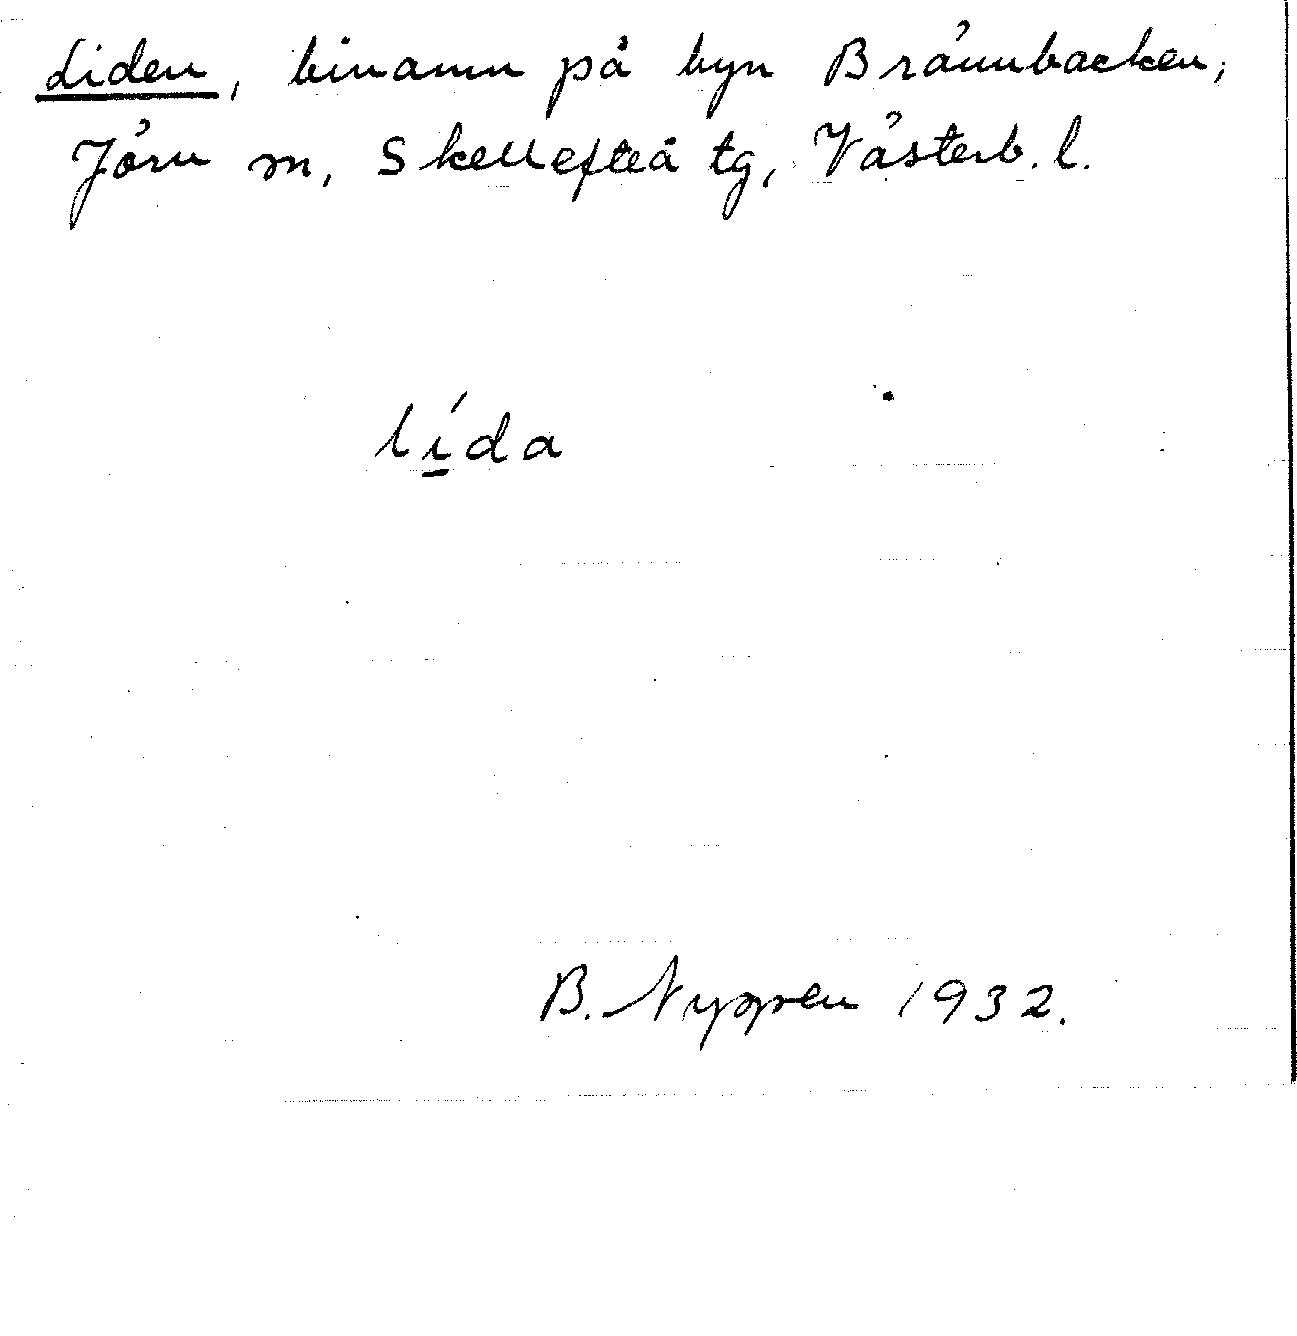 Liden, binamn på byn Brännbacken,
Jörn m, Skellefteå tg, Västerb. l.
lída
B. Nygren 1932.